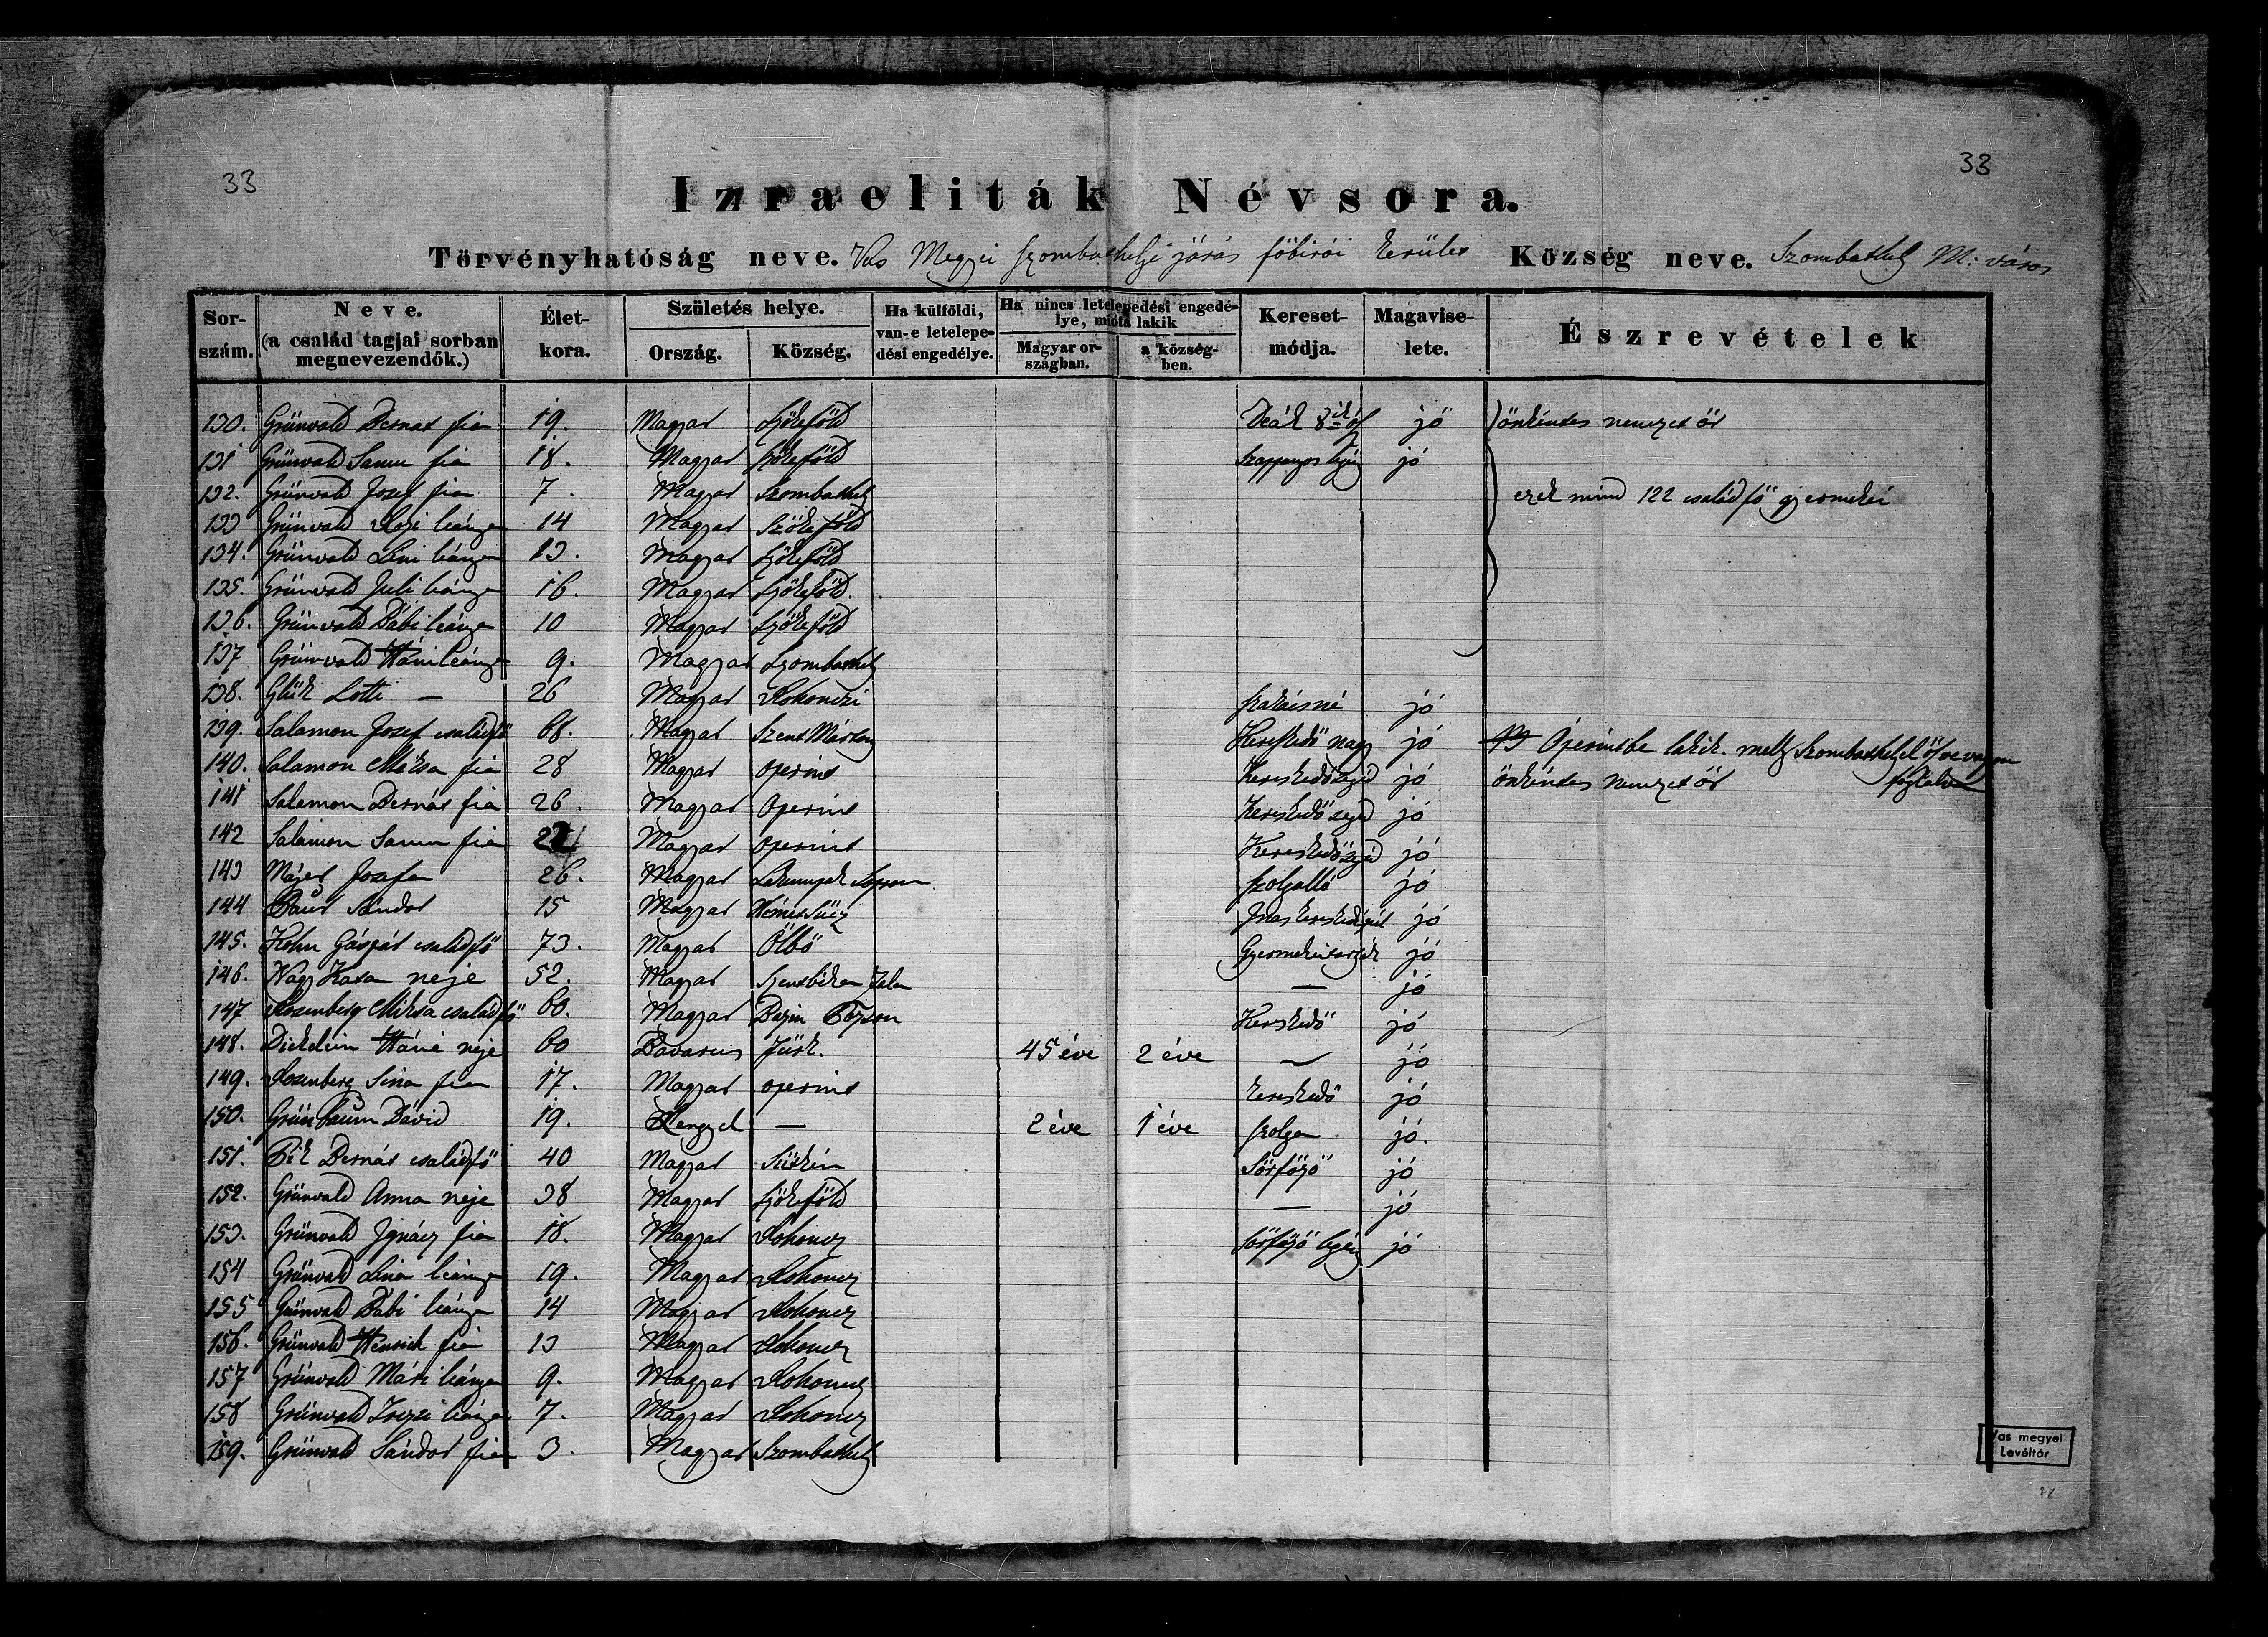 33 33
Izraeliták Névsora.
Törvényhatóság neve. Vas Megyei Szombathelyi járás főbirói Község neve. Szombathely M: város
Sor-szám. Neve. (a család tagjai sorban megnevezendők.) Élet-kora. Születés helye. Ország. Község. Ha külföldi, van-e letelepe-dési engedélye. Ha nincs letelepedési engedé-lye, mióta lakik Magyar or-szágban. a község-ben. Kereset-módja. Magavise-lete. Észrevételek
130. Grünvald Bernat fia 19. Magyar Szőkeföld Deák 8ik jó önkéntes nemzet őr
131 Grünvald Samu fia 18. Magyar Szőkeföld Szappanos legény jó
132. Grünvald Jozef fia 7. Magyar Szombathely ezek mind 122 családfő gyermekei
133 Grünvald Rozi leánya 14 Magyar Szőkeföld
134. Grünvald Leni leánya 13. Magyar Szőkeföld
135. Grünvald Juli leánya 16. Magyar Szőkeföld.
136. Grünvald Bábi leánya 10 Magyar Szőkeföld
137 Grünvald Háni leánya 9. Magyar Szombathely
138. Glük Lotti — 26 Magyar Rohonczi szakácsné jó
139. Salamon Jozef családfő 68. Magyar Szent Márton Kereskedő nagy jó Óperintbe lakik. mely Szombathelyel össze vagyon
140. Salamon Miksa fia 28 Magyar operint Kereskedősegéd jó önkéntes nemzet őr foglalva
141 Salamon Bernát fia 26. Magyar Operint Kereskedő segéd jó
142 Salamon Samu fia Magyar operint Kereskedősegéd jó
143 Májer Jozefa 26. Magyar Sopron szolgálló jó
144 Baur Sándor 15 Magyar Német Szücz jó
145. Kohn Gáspár családfő 73. Magyar Ölbő jó
146. Nagy Kata neje 52. Magyar Zala — jó
147 Rosenberg Miksa családfő 60. Magyar Bazin Pozson Kereskedő jó
148. Háni neje 60 Bavarus Fürt. 45 éve 2 éve — jó
149. Rosenberg Sina fia 17. Magyar operint kereskedő jó
150. Grünbaum Dávid 19. Lengyel — 2 éve 1 éve szolga jó.
151. Pik Bernát családfő 40 Magyar Sörfőző jó
152. Grünvald Anna neje 38 Magyar Szőkeföld — jó
153. Grünvald Ignácz fia 18. Magyar Rohoncz Sörfőző legény jó
154 Grünvald Lina leánya 19. Magyar Rohoncz
155 Grünvald Bábi leánya 14 Magyar Rohoncz
156. Grünvald Henrich fia 13 Magyar Rohoncz
157 Grünvald Mári leánya 9. Magyar Rohoncz
158 Grünvald leánya 7. Magyar Rohoncz
159. Grünvald Sándor fia 3. Magyar Szombathely
Vas megyei
Levéltár